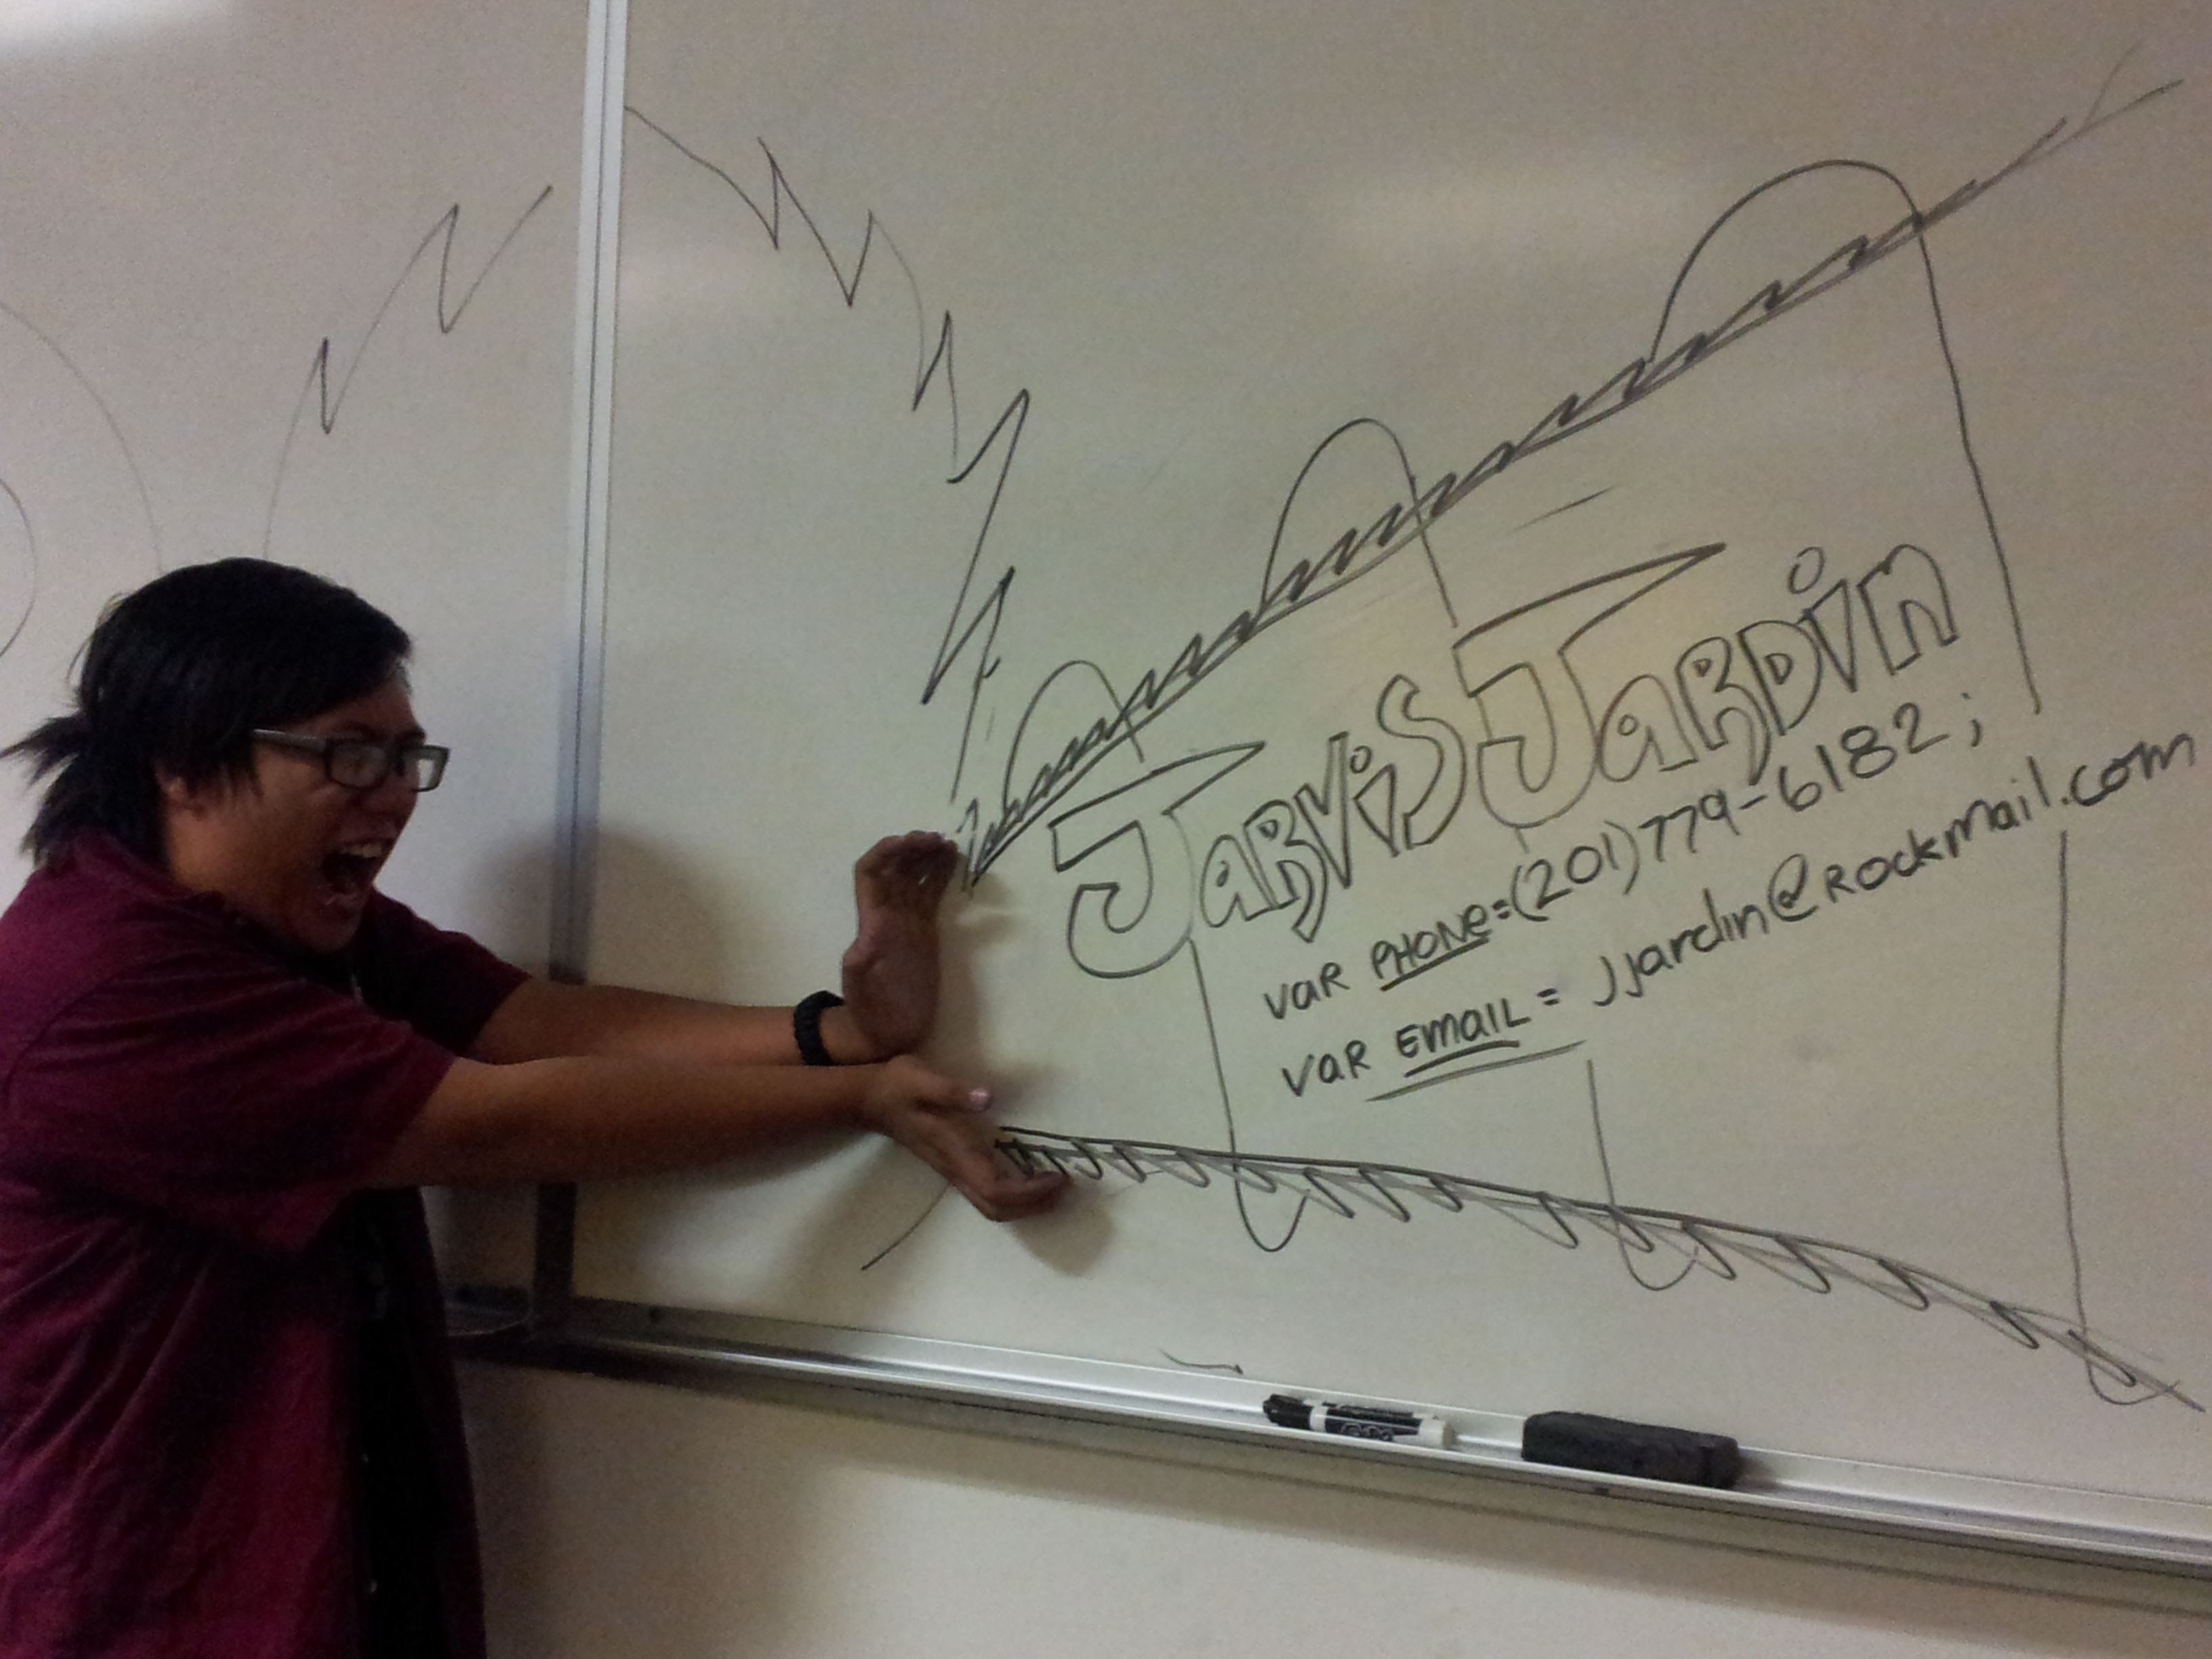 JaRViS JaRDin
vaR PHONe=(201)779-6182;
vaR EmaIL = jjardin@Rockmail.com